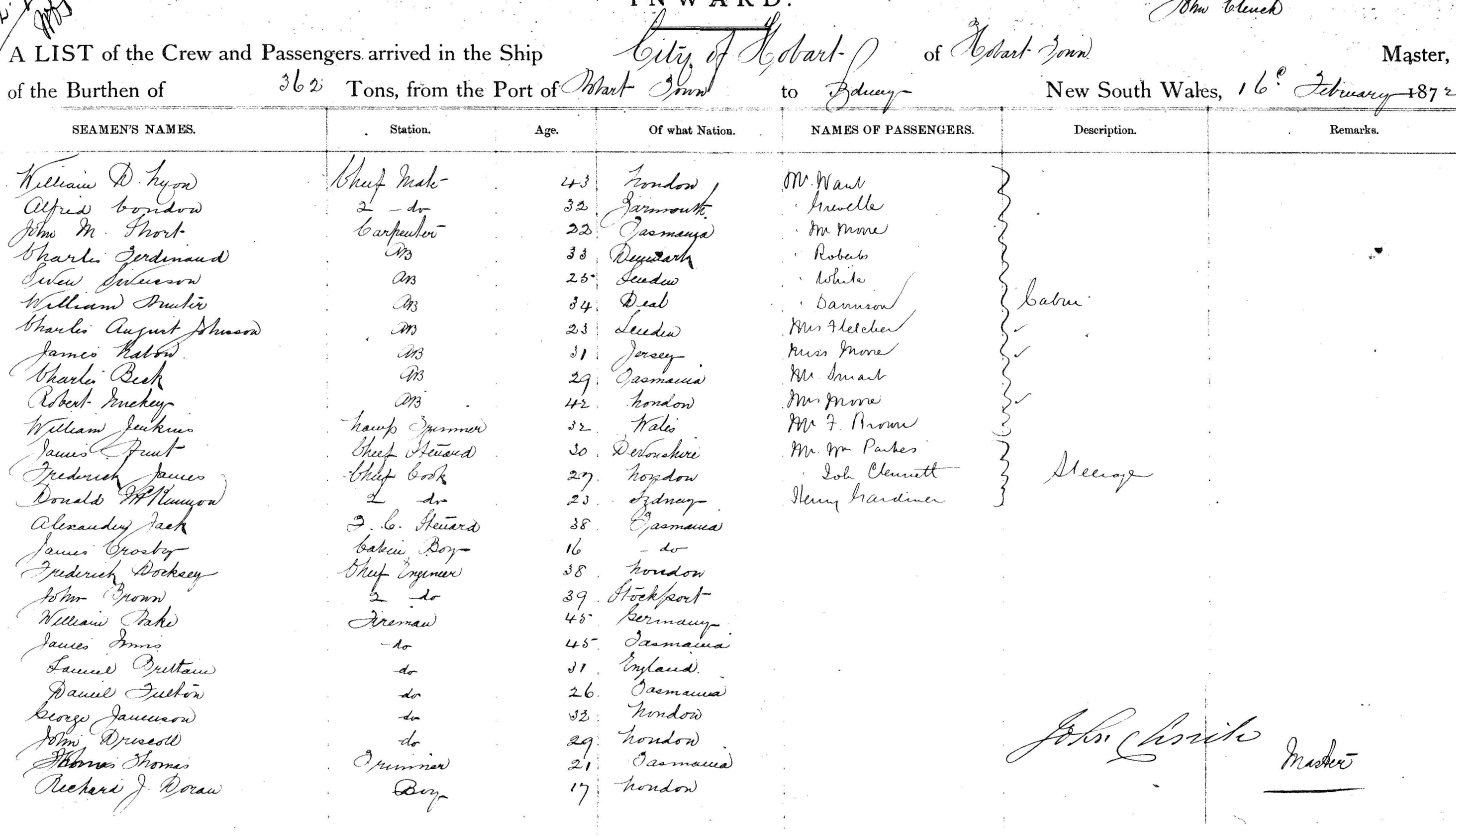 INWARD.
John Clench
A LIST of the Crew and Passengers arrived in the Ship City of Hobart of Hobart Town Master,
of the Burthen of 362 Tons, from the Port of Hobart Town to Sydney New South Wales, 16 February 1872
SEAMEN'S NAMES. Station. Age. Of what Nation. NAMES OF PASSENGERS. Description. Remarks.
William D. Lyon Chief Mate 43 London Mr. Want
Alfred Condon 2 do 32 Yarmouth Greville
John M. Short Carpenter 22 Tasmania
Charles Ferdinand AB 33 Denmark Roberts
Swen Swenson AB 25 Sweden White
William Hunter AB 34 Deal Davnson Cabin
Charles August Johnson AB 23 Sweden Mrs Fletcher
James AB 31 Jersey Miss Moore
Charles Beck AB 29 Tasmania Mr Smart
Robert AB 42 London Mrs Moore
William Jenkins Lamp Trimmer 32 Wales Mr F. Brown
James Hunt Chief Steward 30 Devonshire Mr Wm Parkes
Frederick James Chief Cook 27 London Clennett Steerage
Donald McKinnon 2 do 23 Sydney Henry Gardiner
Alexander Jack F. C. Steward 38 Tasmania
James Crosby Cabin Boy 16 do
Frederick Docksey Chief Engineer 38 London
John Brown 2 do 39 Stockport
William Rake Fireman 45 Germany
James Innis do 45 Tasmania
Samuel Brittain do 31 England
Daniel Fulton do 26 Tasmania
George Jameson do 32 London
John Driscoll do 29 London
Thomas Thomas Trimmer 21 Tasmania
Richard J. Doran Boy 17 London
John Clinch
Master